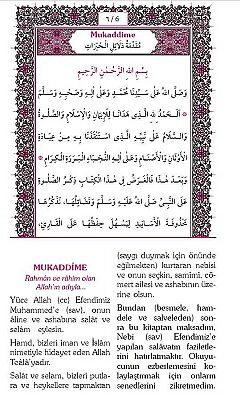 ٦ / 6
Mukaddime
مُقَدِّمَةُ دَلَائِلِ الْخَيْرَاتِ
بِسْمِ اللهِ الرَّحْمٰنِ الرَّحِيمِ
وَصَلَّى اللهُ عَلَى سَيِّدِنَا مُحَمَّدٍ وَعَلَى اٰلِهِ وَصَحْبِهِ وَسَلَّمَ
اَلْحَمْدُ لِلّٰهِ الَّذِي هَدَانَا لِلْاِيمَانِ وَالْاِسْلَامِ وَالصَّلٰوةُ
وَالسَّلَامُ عَلَى نَبِيِّهِ الَّذِي اسْتَنْقَذَنَا بِهِ مِنْ عِبَادَةِ
الْاَوْثَانِ وَالْاَصْنَامِ وَعَلَى اٰلِهِ النُّجَبَاءِ الْبَرَرَةِ الْكِرَامِ
وَبَعْدَ هٰذَا فَالْغَرَضُ فِي هٰذَا الْكِتَابِ ذِكْرُ الصَّلٰوةِ
عَلَى النَّبِيِّ صَلَّى اللهُ عَلَيْهِ وَسَلَّمَ وَفَضَائِلِهَا، نَذْكُرُهَا
مَحْذُوفَةَ الْاَسَانِيدِ لِيَسْهُلَ حِفْظُهَا عَلَى الْقَارِئِ،
MUKADDİME
Rahmân ve râhim olan
Allah'ın adıyla...
Yüce Allah (cc) Efendimiz
Muhammed'e (sav), onun
âline ve ashabına salât ve
selâm eylesin.
Hamd, bizleri iman ve İslâm
nimetiyle hidayet eden Allah
Teâlâ'yadır.
Salât ve selam, bizleri putla-
ra ve heykellere tapmaktan
(saygı duymak için önünde
eğilmekten) kurtaran nebisi
ve onun seçkin, samimi, cö-
mert ailesi ve ashabının üze-
rine olsun.
Bundan (besmele, ham-
dele ve salveleden) son-
ra bu kitaptan maksadım,
Nebi (sav) Efendimiz'e
yapılan salâvatın faziletle-
rini hatırlatmaktır. Okuyu-
cunun ezberlemesini ko-
laylaştırmak için onların
senedlerini zikretmedim.